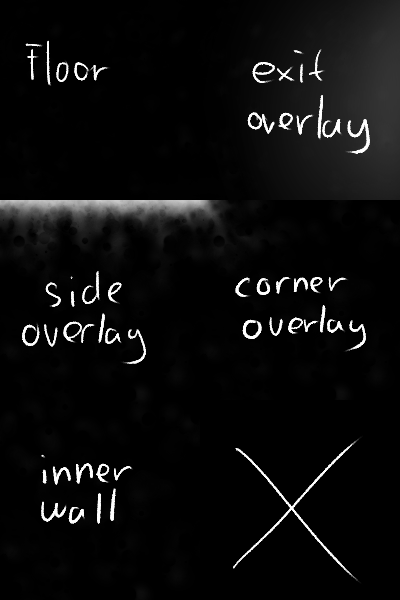 Floor
exit
overlay
side
overlay
corner
overlay
inner
wall